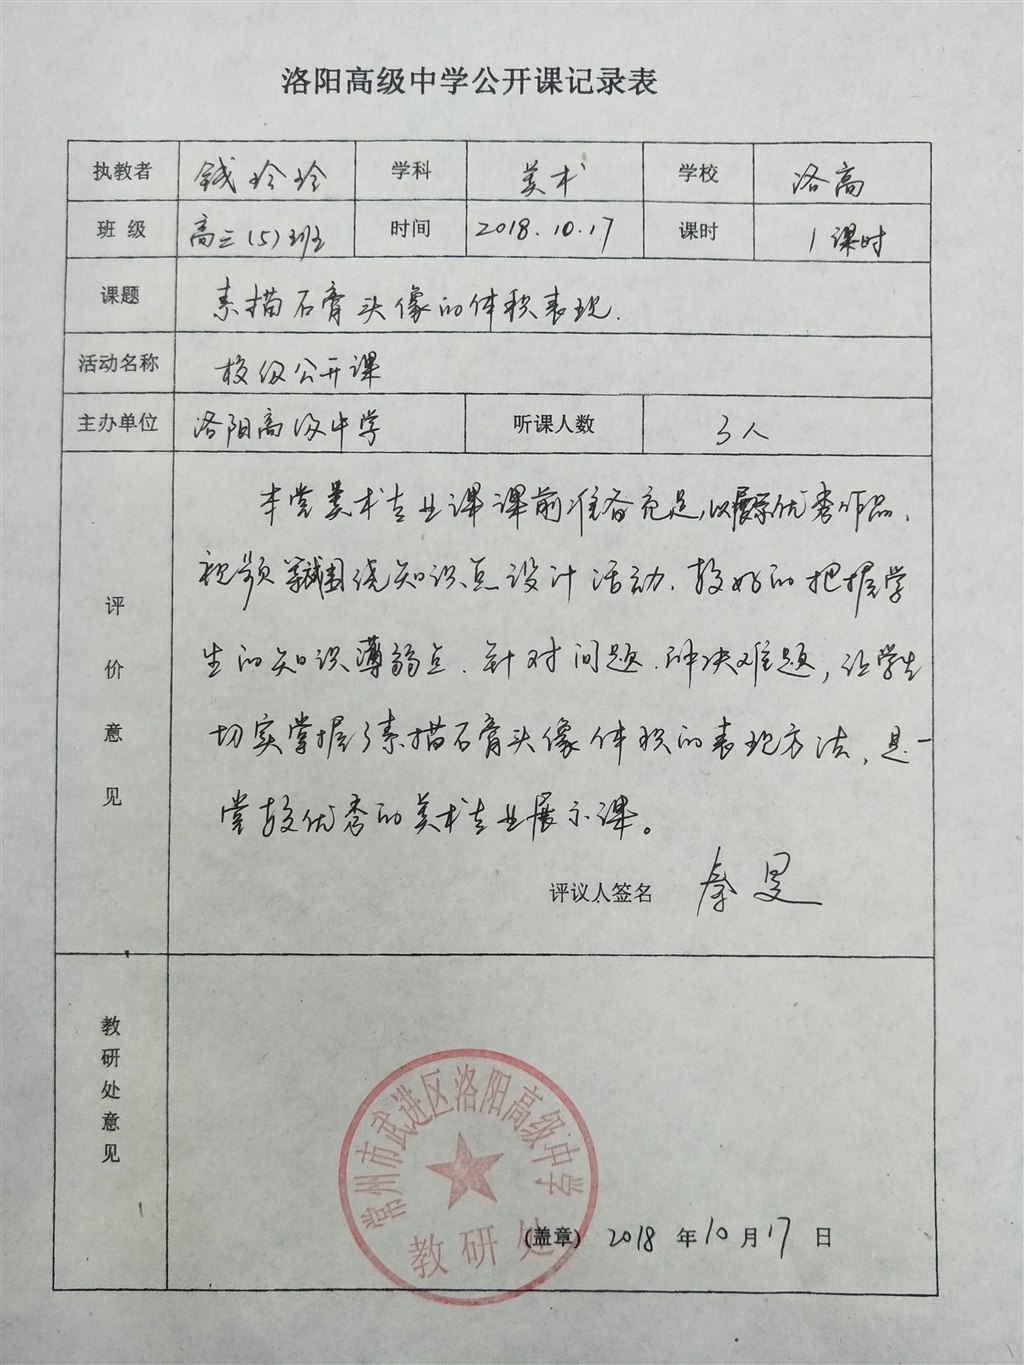 洛阳高级中学公开课记录表
执教者 钱玲玲 学科 美术 学校 洛高
班 级 高三(5)班 时间 2018.10.17 课时 1课时
课题 素描石膏头像的体积表现.
活动名称 校级公开课
主办单位 洛阳高级中学 听课人数 3人
评价意见
本堂美术专业课课前准备充足,以展示优秀作品、
视频等围绕知识点设计活动.较好的把握学
生的知识薄弱点.针对问题.解决难题,让学生
切实掌握了素描石膏头像体积的表现方法,是一
堂较优秀的美术专业展示课。
评议人签名 秦旻
教研处意见
常州市武进区洛阳高级中学
教研处
(盖章) 2018 年 10 月 17 日